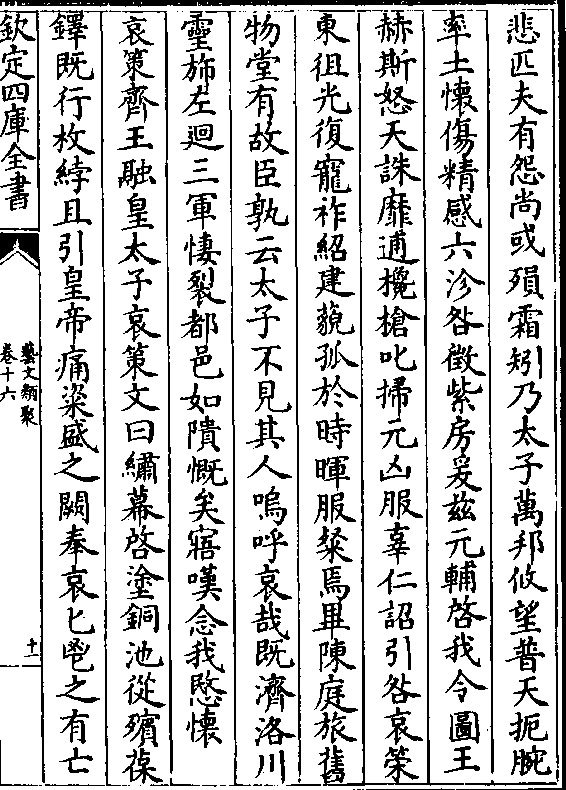 悲匹夫有怨尚或殞霜矧乃太子萬邦攸望普天扼腕
率土懷傷精感六沴咎徵紫房爰茲元輔啓我令圖王
赫斯怒天誅靡逋攙槍叱掃元凶服辜仁詔引咎哀策
東徂光復寵祚紹建藐孤於時暉服粲焉畢陳庭旅舊
物堂有故臣孰云太子不見其人嗚呼哀哉既濟洛川
靈斾左迴三軍悽裂都邑如隤慨矣寤嘆念我愍懷
哀策齊王融皇太子哀策文曰繡幕啓塗銅池從殯葆
鐸既行枚綍且引皇帝痛粢盛之闕奉哀匕鬯之有亡
欽定四庫全書
藝文類聚
卷十六
十一